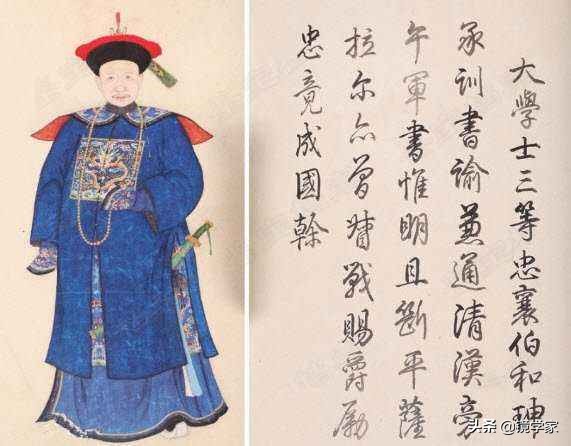 大學士三等忠襄伯和珅
承訓書諭兼通清漢旁
午軍書惟明且斷平薩
拉尔亦曾督戰賜爵励
忠竟成國幹
头条 @镜学家